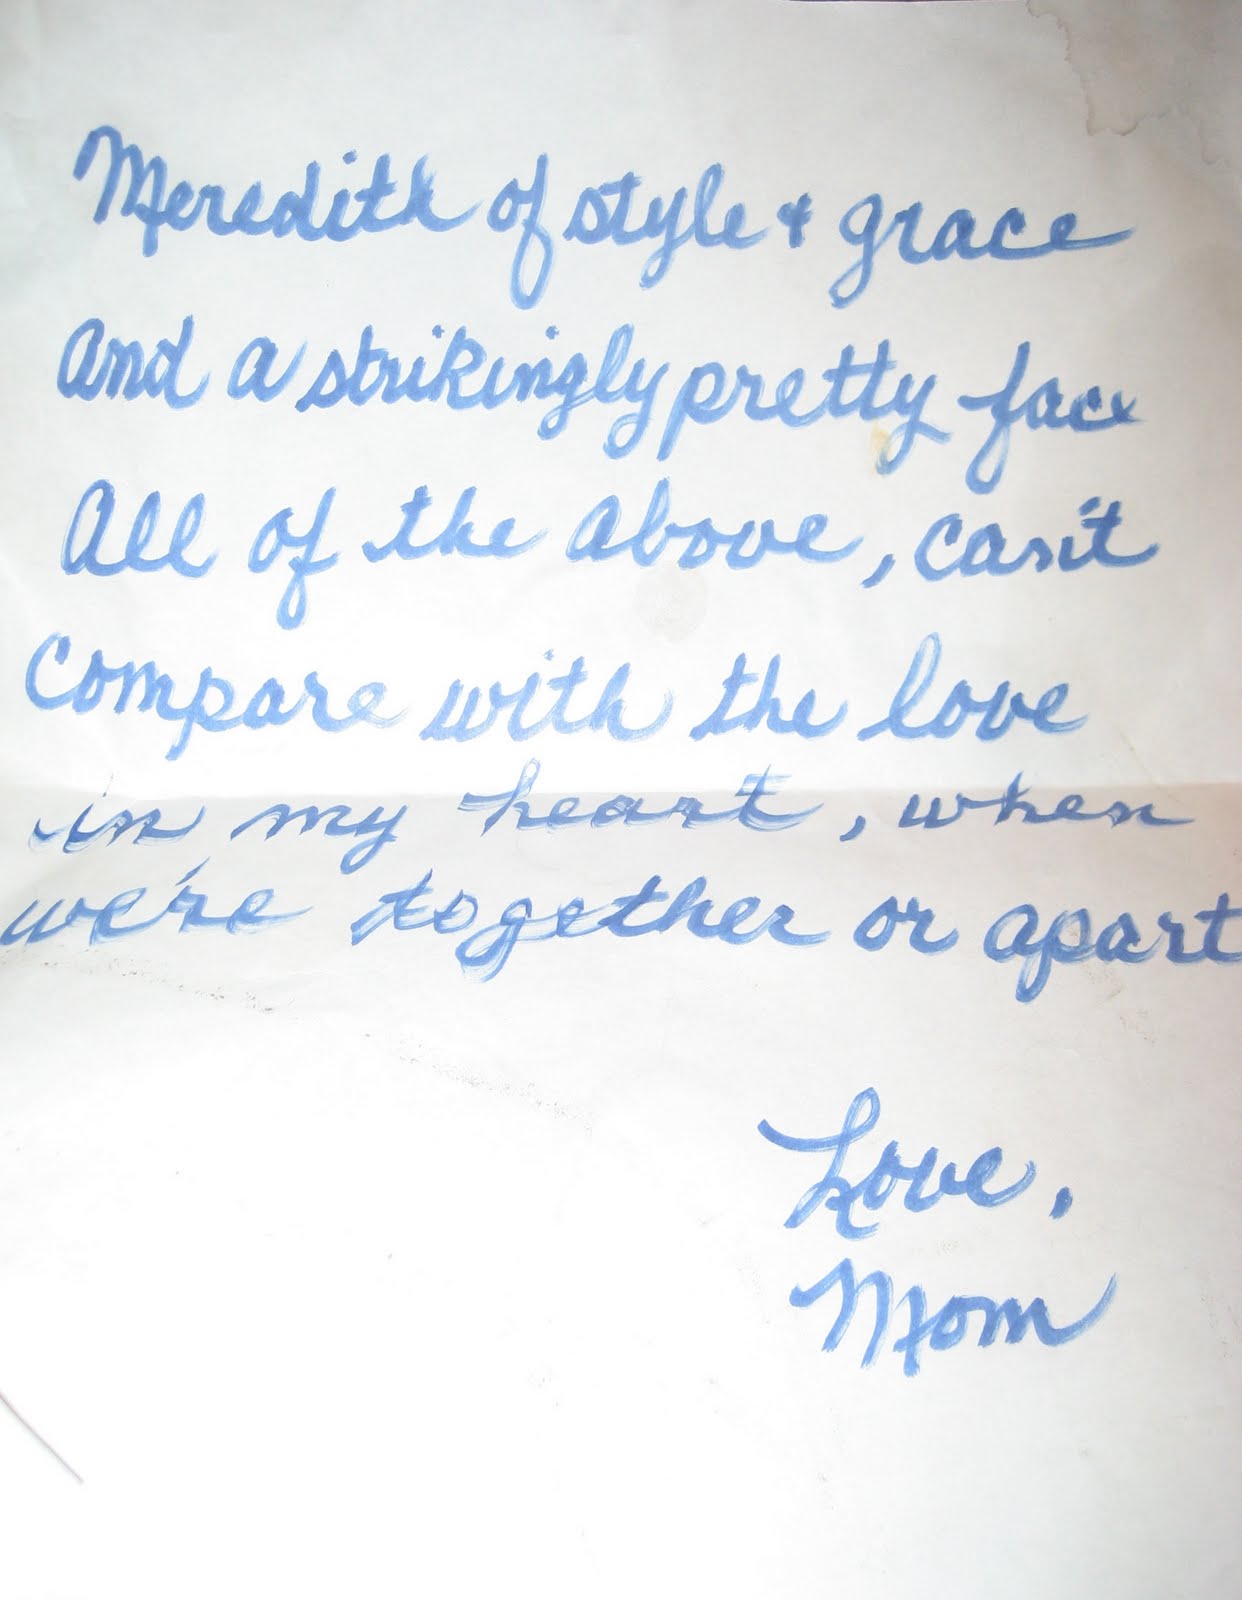 Meredith of style & grace
And a strikingly pretty face
All of the above, can't
compare with the love
in my heart, when
we're together or apart
Love,
Mom